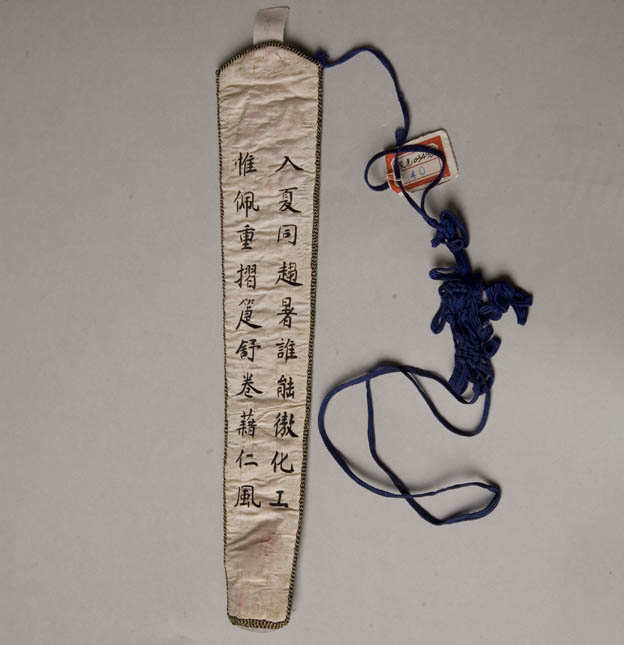 入夏同趨暑誰能徼化工
惟佩重摺箑舒卷藉仁風
40